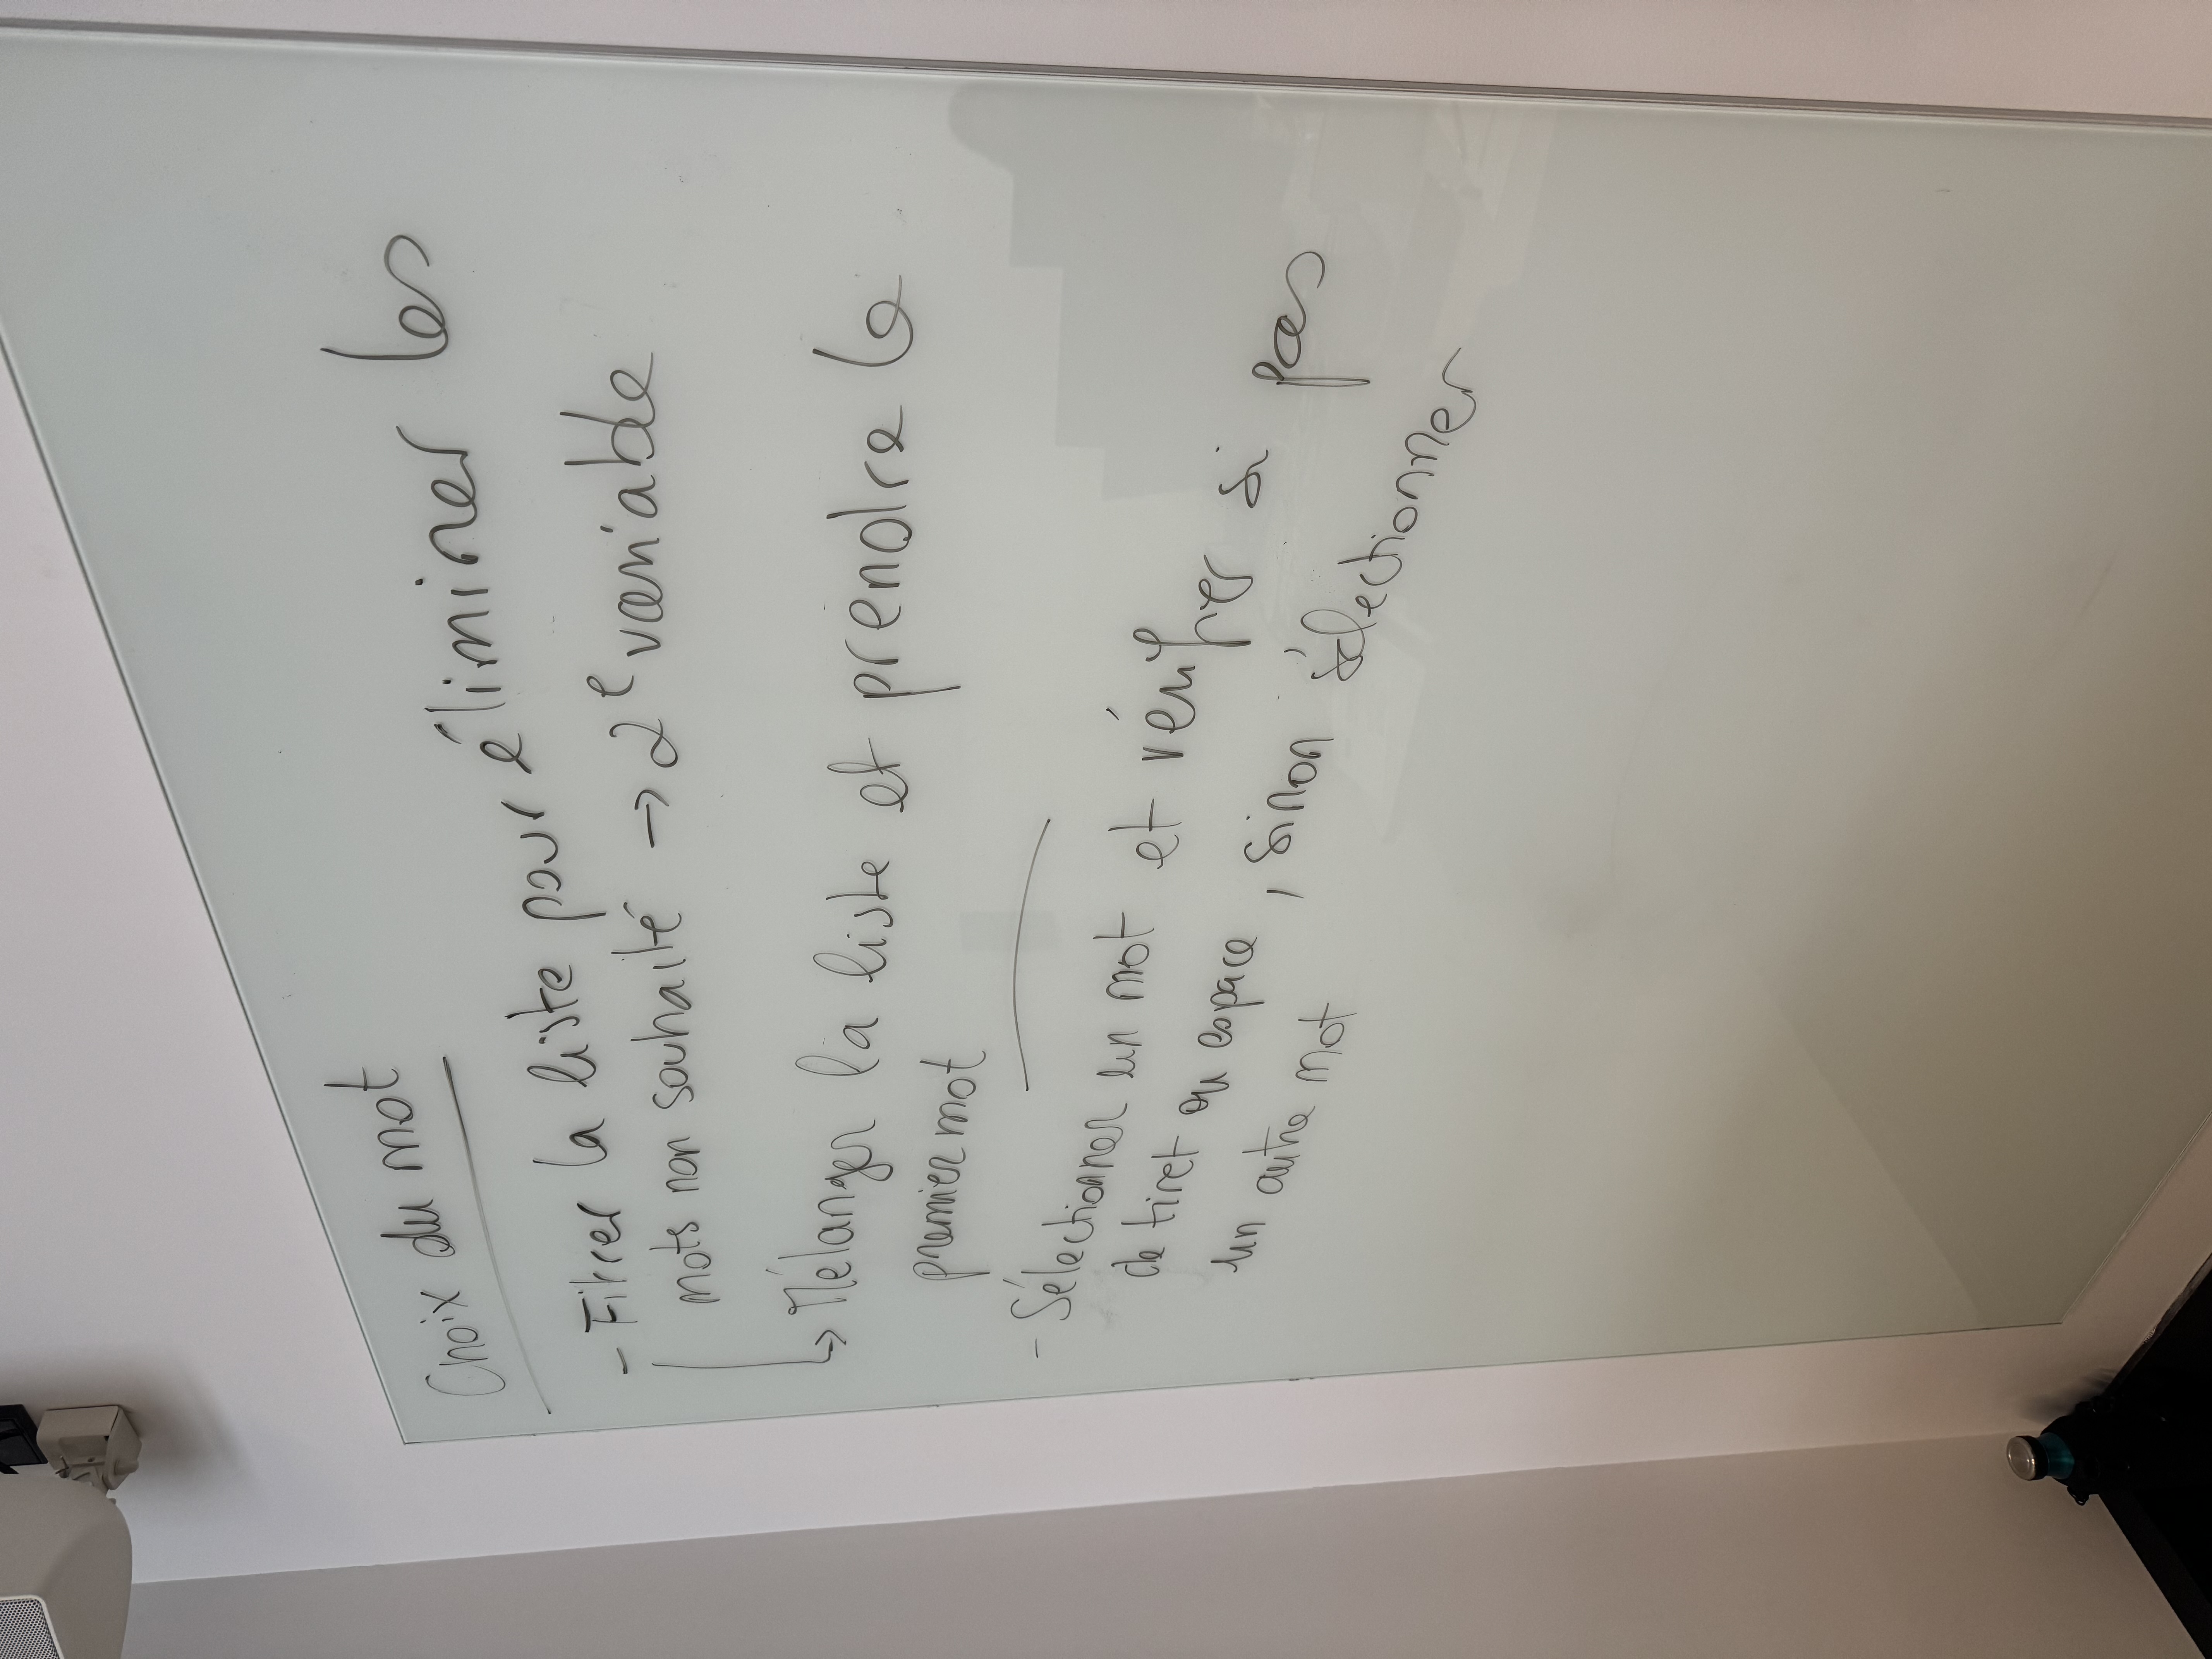 Choix du mot
- Filtrer la liste pour éliminer les
mots non souhaité → 2e variable
↳ Mélanger la liste et prendre le
premier mot
- Sélectionner un mot et vérifier si pas
de tiret ou espace, sinon sélectionner
un autre mot